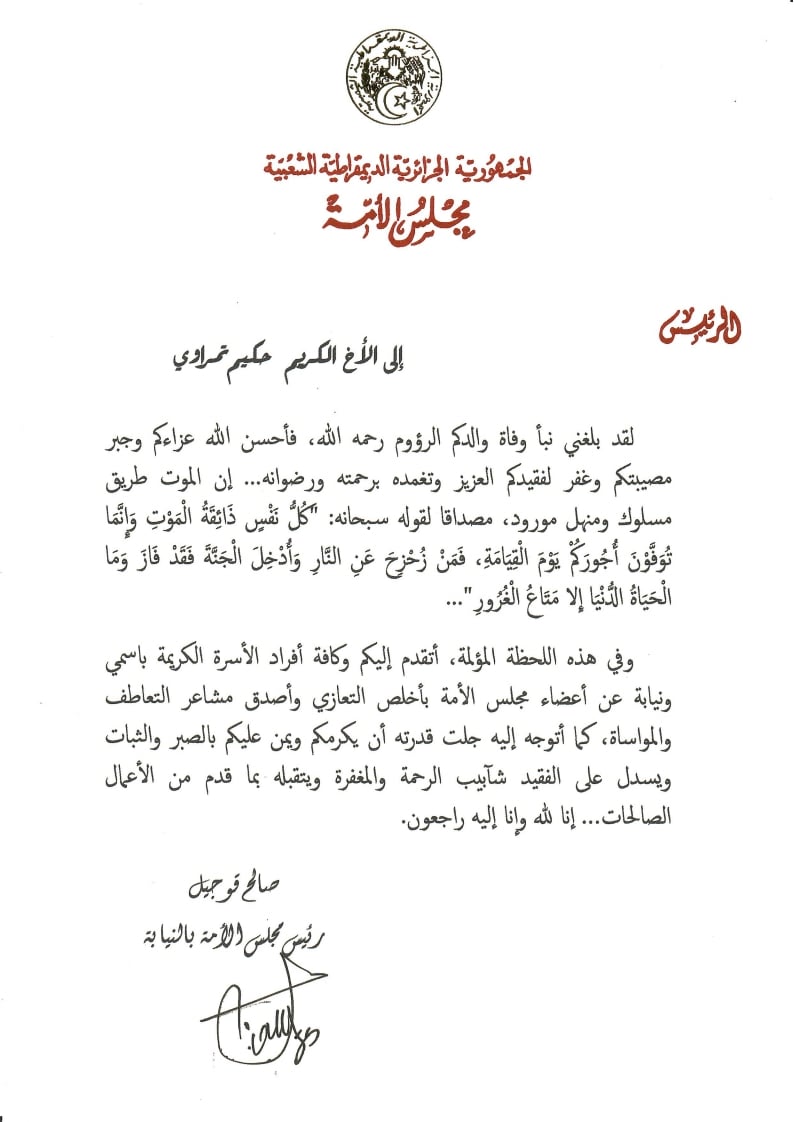 الجمهورية الجزائرية الديمقراطية الشعبية
الجمهوريّة الجزائريّة الديمقراطيّة الشّعبيّة
مجلس الأمّة
الرئيس
إلى الأخ الكريم حكيم تمراوي
لقد بلغني نبأ وفاة والدكم الرؤوم رحمه الله، فأحسن الله عزاءكم وجبر
مصيبتكم وغفر لفقيدكم العزيز وتغمده برحمته ورضوانه... إن الموت طريق
مسلوك ومنهل مورود، مصداقا لقوله سبحانه: "كُلُّ نَفْسٍ ذَائِقَةُ الْمَوْتِ وَإِنَّمَا
تُوَفَّوْنَ أُجُورَكُمْ يَوْمَ الْقِيَامَةِ، فَمَنْ زُحْزِحَ عَنِ النَّارِ وَأُدْخِلَ الْجَنَّةَ فَقَدْ فَازَ وَمَا
الْحَيَاةُ الدُّنْيَا إِلا مَتَاعُ الْغُرُورِ"...
وفي هذه اللحظة المؤلمة، أتقدم إليكم وكافة أفراد الأسرة الكريمة باسمي
ونيابة عن أعضاء مجلس الأمة بأخلص التعازي وأصدق مشاعر التعاطف
والمواساة، كما أتوجه إليه جلت قدرته أن يكرمكم ويمن عليكم بالصبر والثبات
ويسدل على الفقيد شآبيب الرحمة والمغفرة ويتقبله بما قدم من الأعمال
الصالحات... إنا لله وإنا إليه راجعون.
صالح قوجيل
رئيس مجلس الأمة بالنيابة